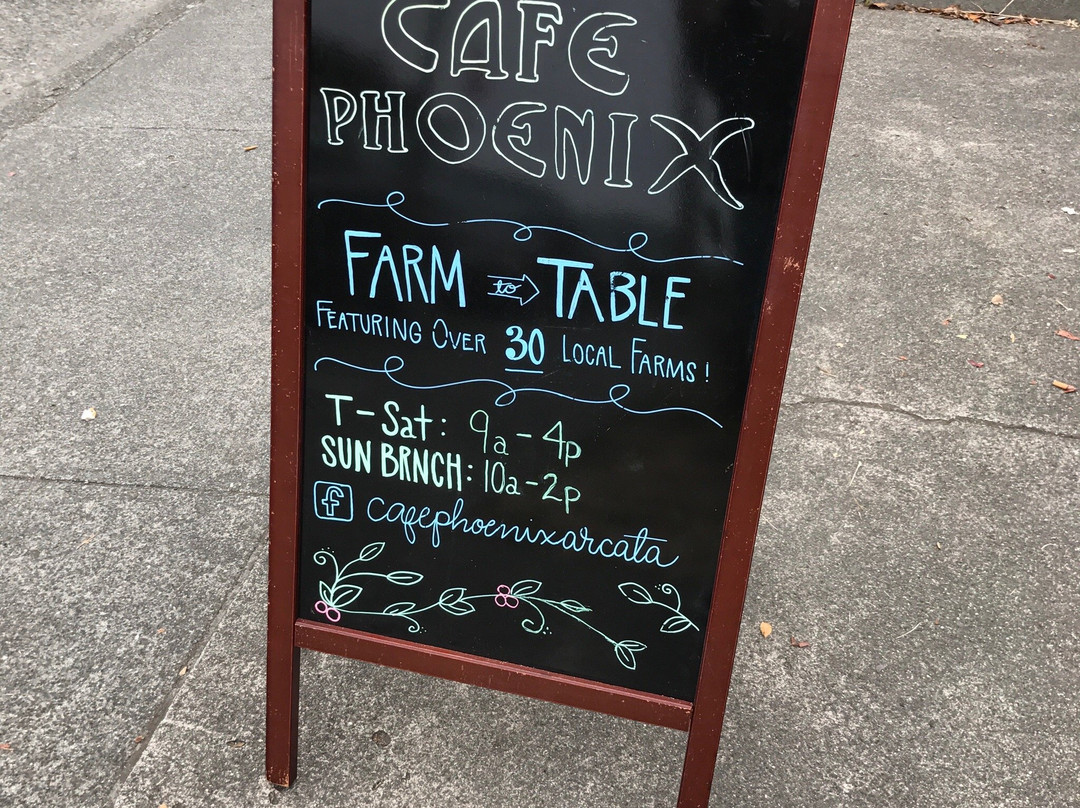 CAFE
PHOENIX
FARM to TABLE
FEATURING OVER 30 LOCAL FARMS!
T-Sat: 9a-4p
SUN BRNCH: 10a-2p
f cafephoenixarcata